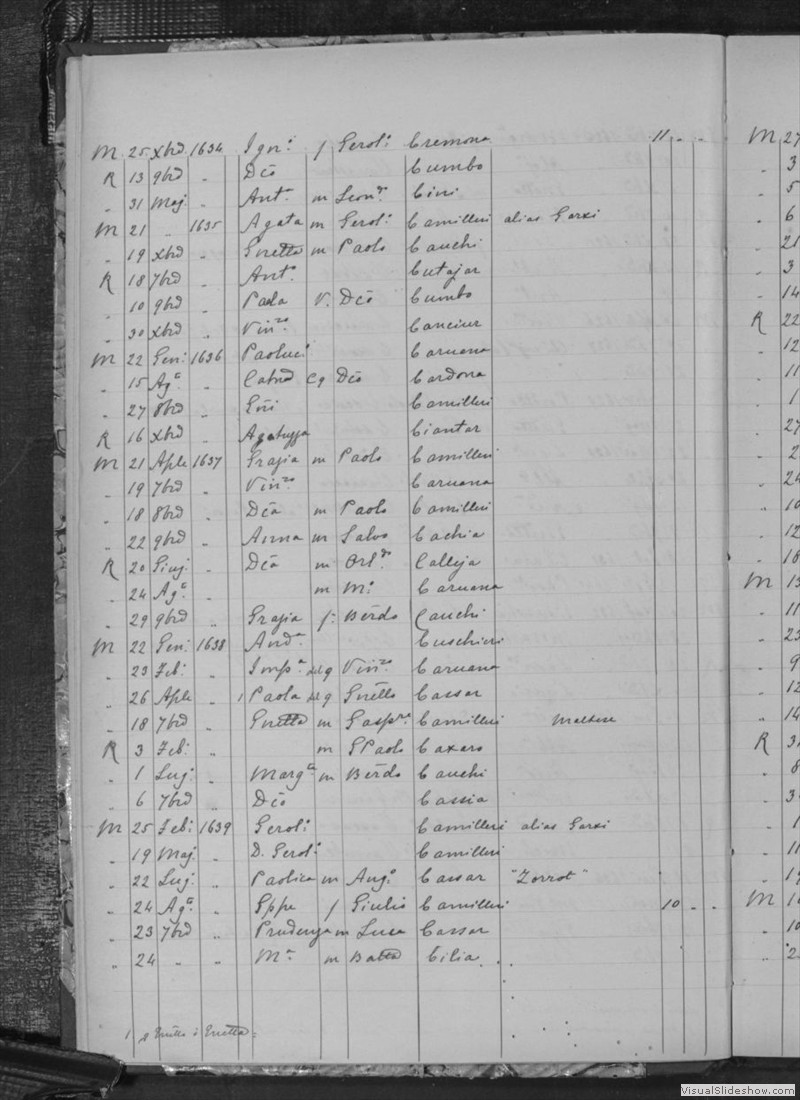 M 25 Xbr͞d 1634 Ign.ª f Gerol.ª Cremona 11 . .
R 13 9br͞d " Dc͞o Cumbo
" 31 Maj. " Ant.ª m Leon.ª Cini
M 21 " 1635 Agata m Gerol.ª Camilleri alias Garxi
" 19 Xbr͞d " Enretta m Paolo Cauchi
R 18 7br͞d " Ant.ª Cutajar
" 10 9br͞d " Paola V. Dc͞o Cumbo
" 30 Xbr͞d " Vin.zo Canciur
M 22 Gen: 1636 Paoluc.i Caruana
" 15 Ag.ª " Catrnd Cg Dc͞o Cardona
" 27 8br͞d " Camilleri
R 16 Xbr͞d " Agatuzza Ciantar
M 21 Aple 1637 Grazia m Paolo Camilleri
" 19 7br͞d " Vin.zo Caruana
" 18 8br͞d " Dc͞a m Paolo Camilleri
" 22 9br͞d " Anna m Salvo Cachia
R 20 Giuj. " Dc͞a m Orl.do Calleja
" 24 Ag.ª " m M.º Caruana
" 29 9br͞d " Grazia f: Berdo Cauchi
M 22 Gen: 1638 And.ª Cuschieri
" 23 Feb: " Imp.ª del q Vin.zo Caruana
" 26 Aple " 1 Paola del q Enretto Cassar
" 18 7br͞d " Enretta m Gasp.re Camilleri Maltese
R 3 Feb: " m GPaolo Caxaro
" 1 Luj: " Marg.ª m Berdo Cauchi
" 6 7br͞d " Dc͞o Cassia
M 25 Feb: 1639 Gerol.i Camilleri alias Garxi
" 19 Maj. " D. Gerol.º Camilleri
" 22 Luj. " Paolica m Aug.º Cassar "Zorrot"
" 24 Ag.ª " Gppe f Giulio Camilleri 10 . .
" 23 7br͞d " Prudenza m Luca Cassar
" 24 " " M.ª m Batta Cilia
M 27
" 3
" 5
" 6
" 21
" 3
" 14
R 22
" 12
" 11
" 1
" 27
" 2
" 24
" 10
" 12
" 18
M 13
" 11
" 23
" 9
" 12
" 14
R 3
" 8
" 3
" 1
" 11
" 19
M 1
" 10
" 2
VisualSlideshow.com